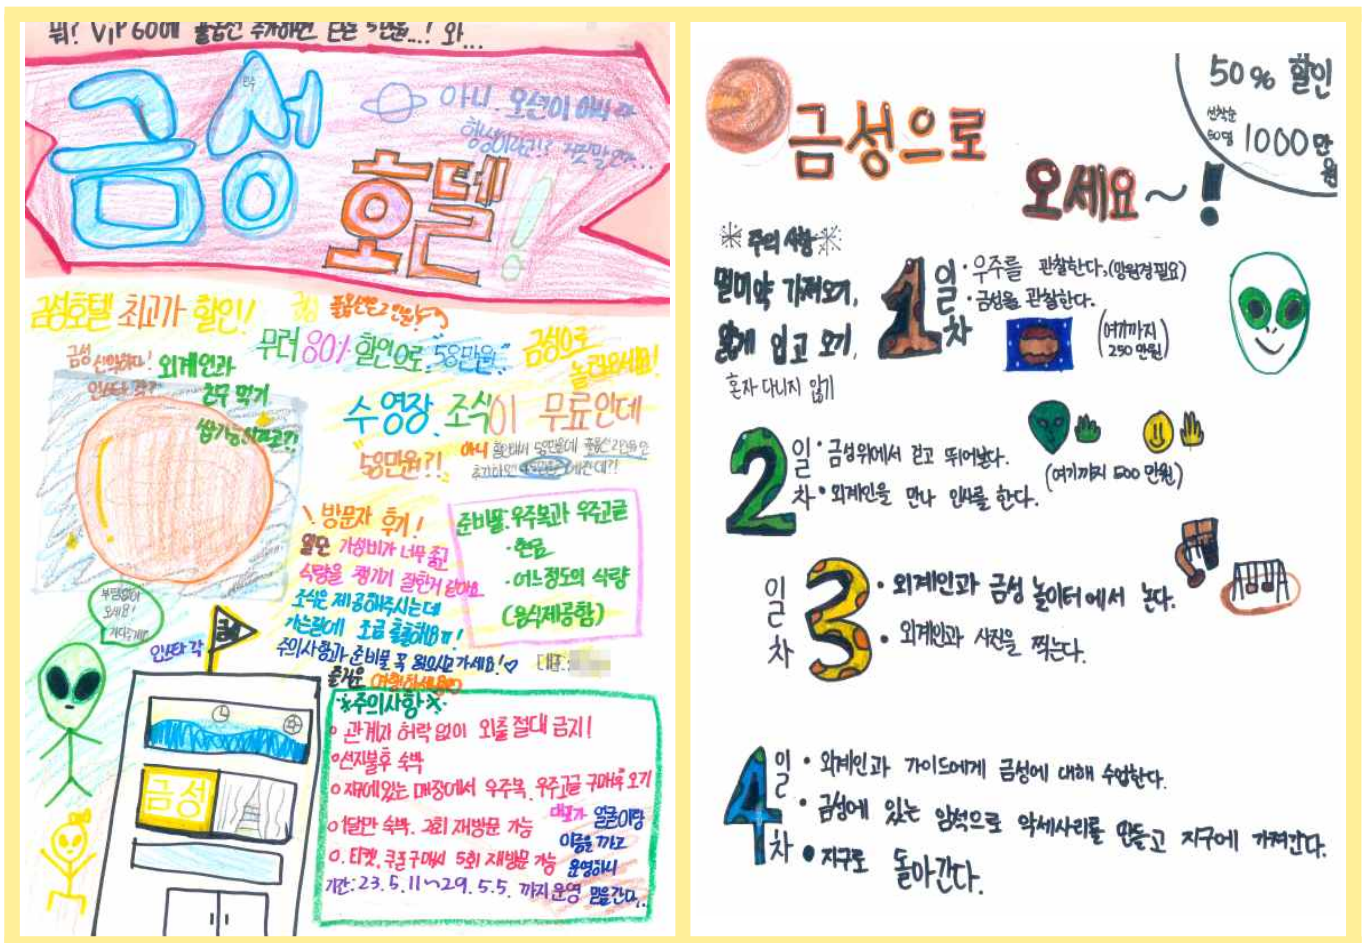 뭐? VIP 60에 풀옵션 추가하면 단돈 5만원...! 와...
금성
호텔!
아니. 오션이 아니라
행성이라고!? 정말인가...
금성호텔 최고가 할인!
금성 풀옵션은 2만원!
무려 80% 할인으로 "58만원"
금성으로
놀러오세요!
금성 신박하다!
인스타 각?
외계인과
조무 먹기
쌉가능이라고?!
수영장, 조식이 무료인데
"58만원"?!
아니 할인해서 58만원에 풀옵션 2만원만
추가하면
방문자 후기!
일단 가성비가 너무 좋고
식량을 챙기기 잘한거 같아요
조식은 제공해주시는데
가는길에 조금 출출해요ㅠ!
주의사항과 준비물 꼭 읽으시고 가세요!♡
즐거운 여행하세요♡
준비물. 우주복과 우주고글
·현금
·어느정도의 식량
(음식제공함)
대표:
부담없이
오세요!
기다릴게요
인스타 각
금성
금성
※주의사항※
○ 관계자 허락 없이 외출 절대 금지!
○선지불후 숙박
○ 지구에있는 매장에서 우주복, 우주고글 구매후 오기
○1달만 숙박. 2회 재방문 가능
○. 티켓, 쿠폰구매시 5회 재방문 가능
기간: 23. 5. 11 ~ 29. 5. 5. 까지 운영
대표가 얼굴이랑
이름을 까고
운영하니
믿을간다.
금성으로
오세요~!
50% 할인
선착순
50명 1000만
원
※ 주의 사항 ※
멀미약 가져오기,
얇게 입고 오기,
혼자 다니지 않기
1일차
· 우주를 관찰한다.(망원경필요)
· 금성을 관찰한다.
(여기까지
250만원)
2일차
· 금성위에서 걷고 뛰어본다.
· 외계인을 만나 인사를 한다.
(여기까지 500만원)
3일차
· 외계인과 금성 놀이터에서 논다.
· 외계인과 사진을 찍는다.
4일차
· 외계인과 가이드에게 금성에 대해 수업한다.
· 금성에 있는 암석으로 악세사리를 만들고 지구에 가져간다.
· 지구로 돌아간다.